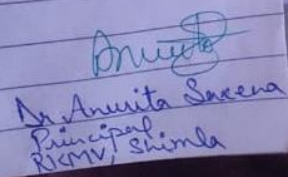 Dr Anurita Saxena
Principal
RKMV, Shimla